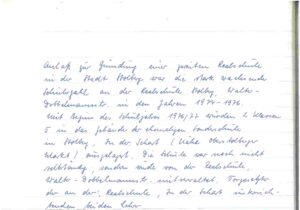 Anlaß zur Gründung einer zweiten Realschule
in der Stadt Stolberg war die stark wachsende
Schülerzahl an der Realschule Stolberg, Walter-
Dobbelmannstr. in den Jahren 1974 - 1976.
Mit Beginn des Schuljahres 1976/77 wurden 2 Klassen
5 in das Gebäude der ehemaligen Sonderschule
in Stolberg, In der Schart (Nähe Oberstolberger
Markt) ausgelagert. Die Schule war noch nicht
selbständig, sondern wurde von der Realschule,
Walter-Dobbelmannstr. mitverwaltet.
der an der Realschule, In der Schart unterrich-
tenden beiden Lehrer